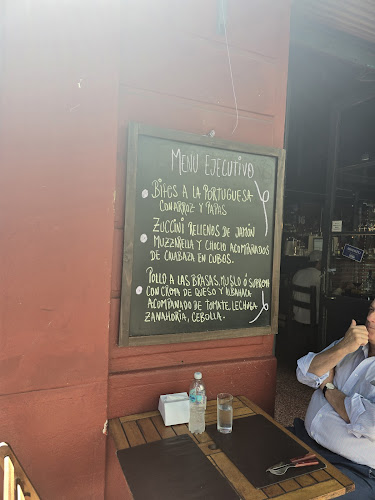 MENU EJECUTIVO
BIFES A LA PORTUGUESA
CON ARROZ Y PAPAS
ZUCCINI RELLENOS DE JAMÓN
MUZZARELLA Y CHOCLO ACOMPAÑADOS
DE CALABAZA EN CUBOS.
POLLO A LAS BRASAS, MUSLO Ó SUPREMA
CON CREMA DE QUESO Y ALBAHACA
ACOMPAÑADO DE TOMATE, LECHUGA
ZANAHORIA, CEBOLLA.